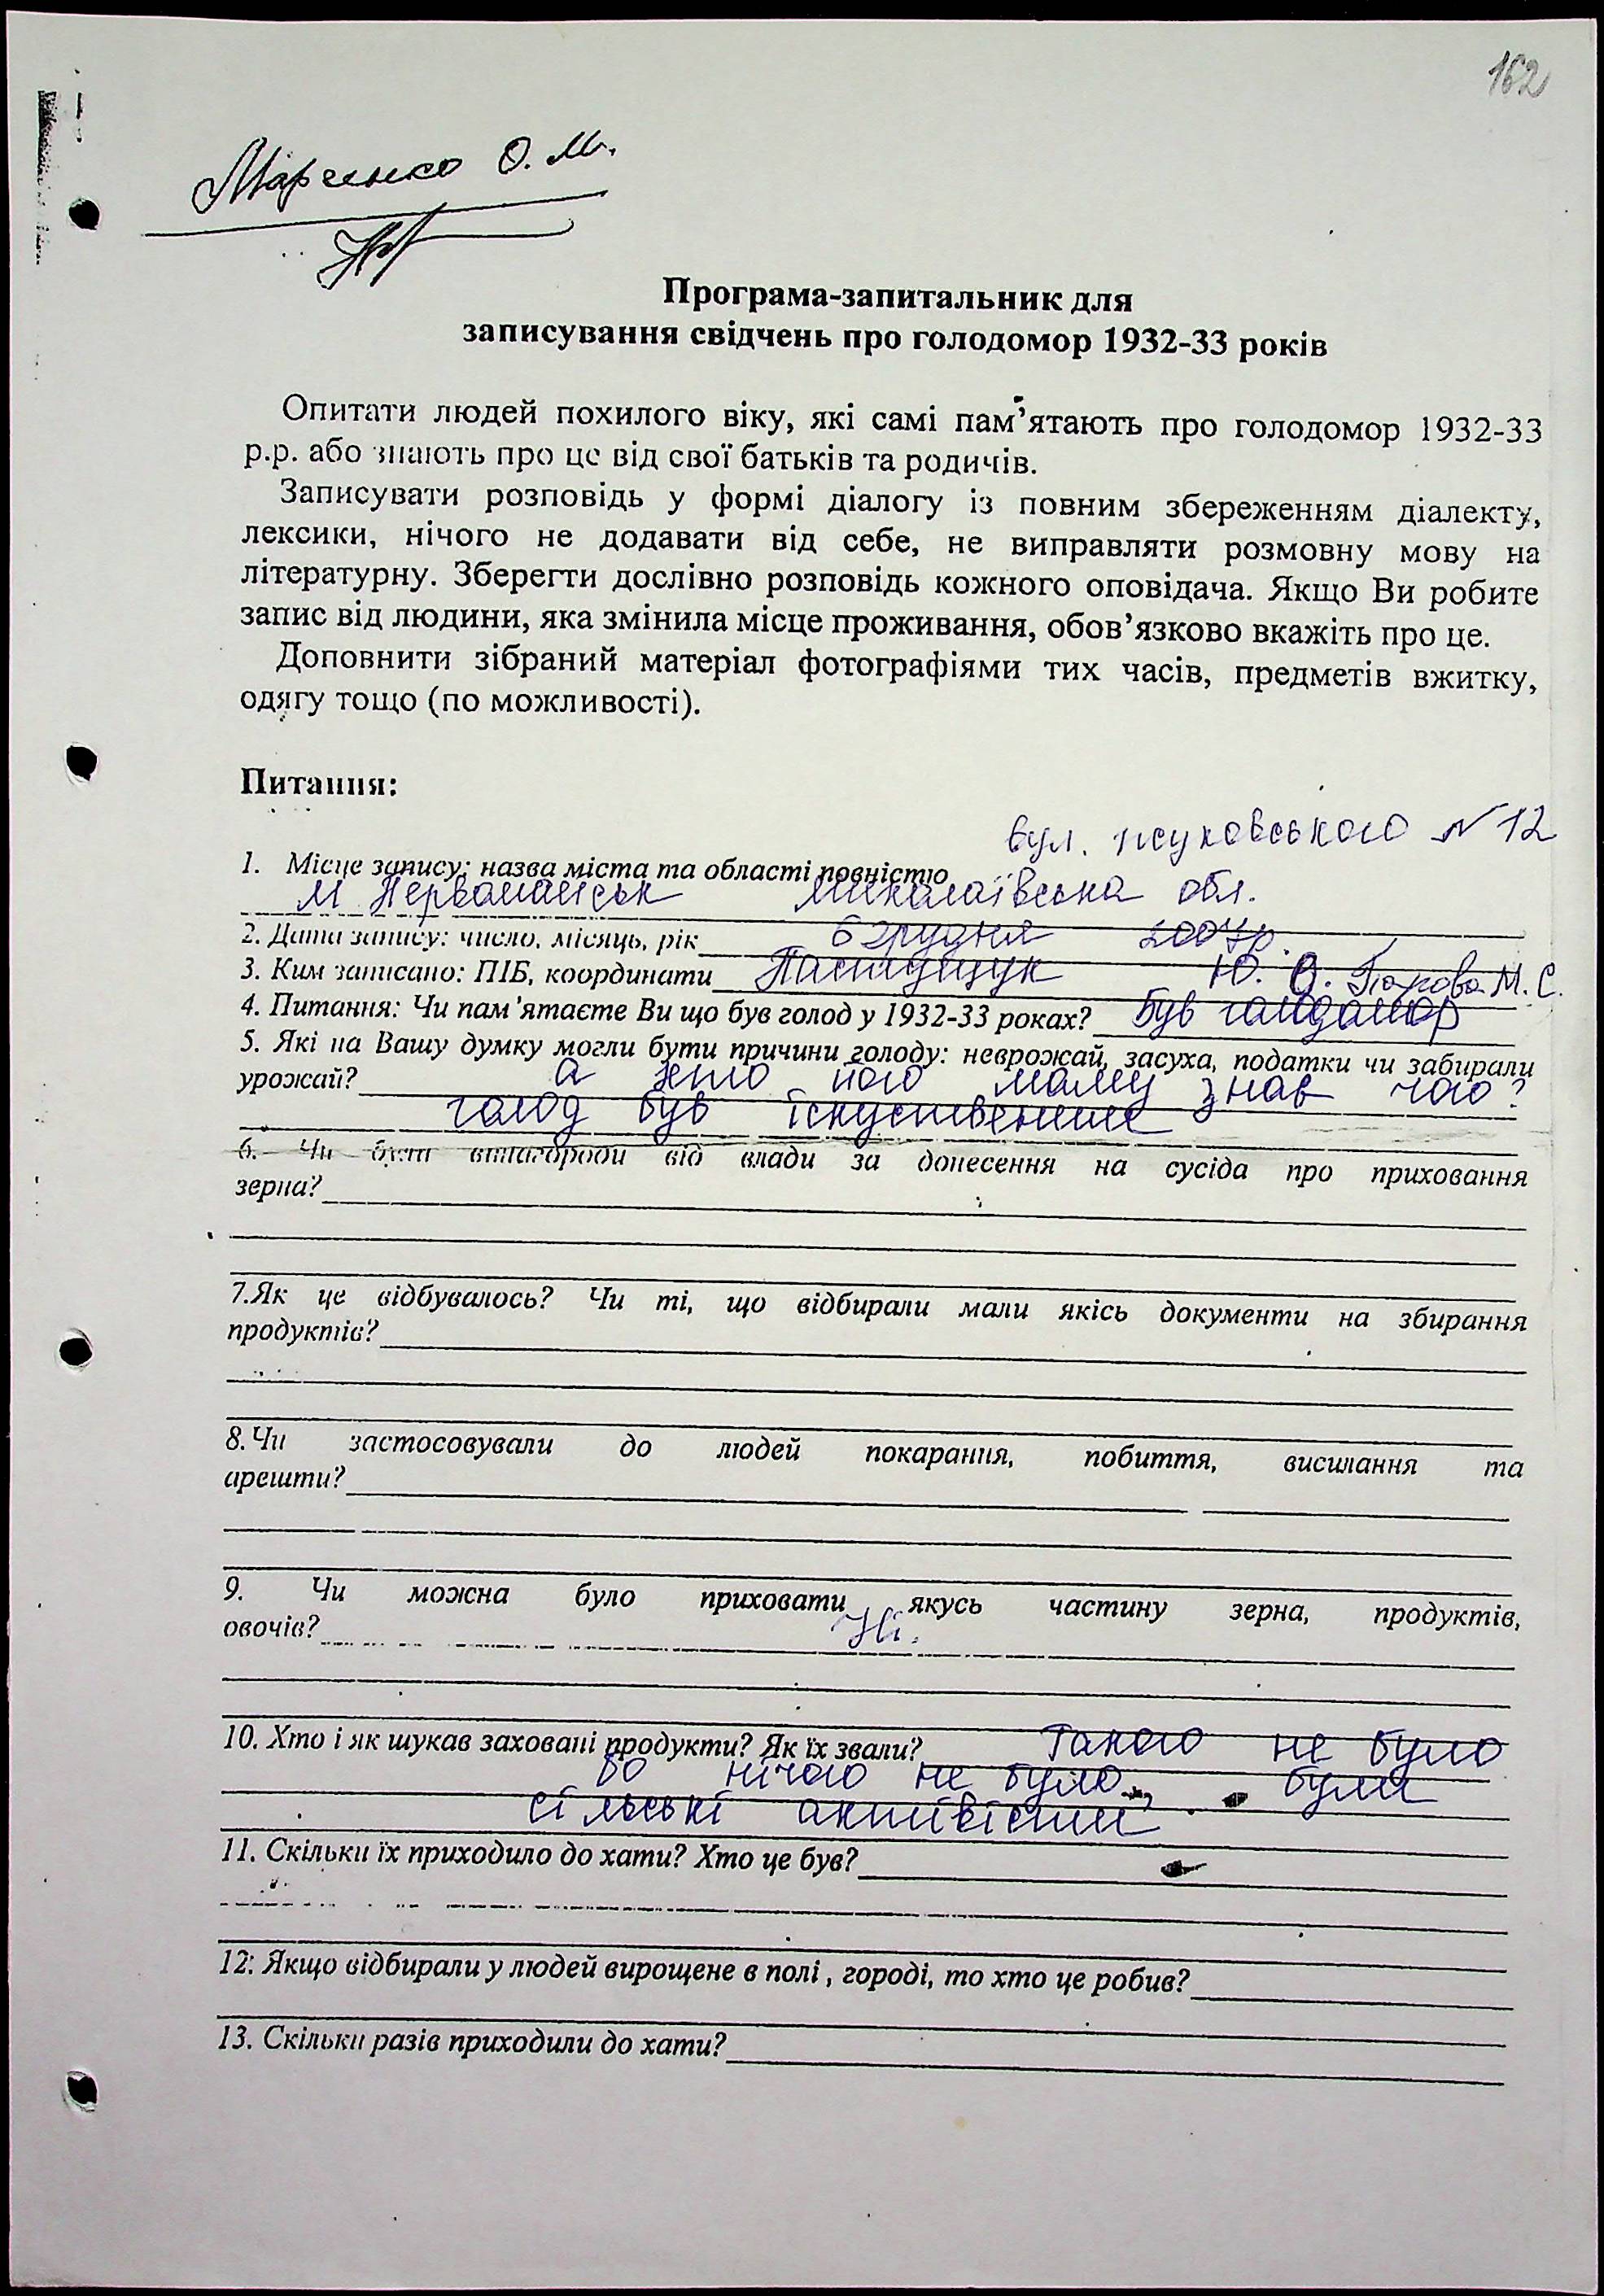 162
Марченко О. М.
Програма-запитальник для
записування свідчень про голодомор 1932-33 років
Опитати людей похилого віку, які самі пам’ятають про голодомор 1932-33
р.р. або знають про це від свої батьків та родичів.
Записувати розповідь у формі діалогу із повним збереженням діалекту,
лексики, нічого не додавати від себе, не виправляти розмовну мову на
літературну. Зберегти дослівно розповідь кожного оповідача. Якщо Ви робите
запис від людини, яка змінила місце проживання, обов’язково вкажіть про це.
Доповнити зібраний матеріал фотографіями тих часів, предметів вжитку,
одягу тощо (по можливості).
Питання:
вул. жуковського №12
1. Місце запису: назва міста та області повністю
м Первомайськ Миколаївська обл.
2. Дата запису: число, місяць, рік 6 грудня 2007р.
3. Ким записано: ПІБ, координати Пастущук Ю. О. М. С.
4. Питання: Чи пам’ятаєте Ви що був голод у 1932-33 роках? Був голодомор
5. Які на Вашу думку могли бути причини голоду: неврожай, засуха, податки чи забирали
урожай? а хто його маму знав чого?
голод був іскуственний
6. Чи були винагороди від влади за донесення на сусіда про приховання
зерна?
7.Як це відбувалось? Чи ті, що відбирали мали якісь документи на збирання
продуктів?
8.Чи застосовували до людей покарання, побиття, висилання та
арешти?
9. Чи можна було приховати якусь частину зерна, продуктів,
овочів? Ні.
10. Хто і як шукав заховані продукти? Як їх звали? Такого не було
бо нічого не було, були
сільські активісти
11. Скільки їх приходило до хати? Хто це був?
12. Якщо відбирали у людей вирощене в полі , городі, то хто це робив?
13. Скільки разів приходили до хати?